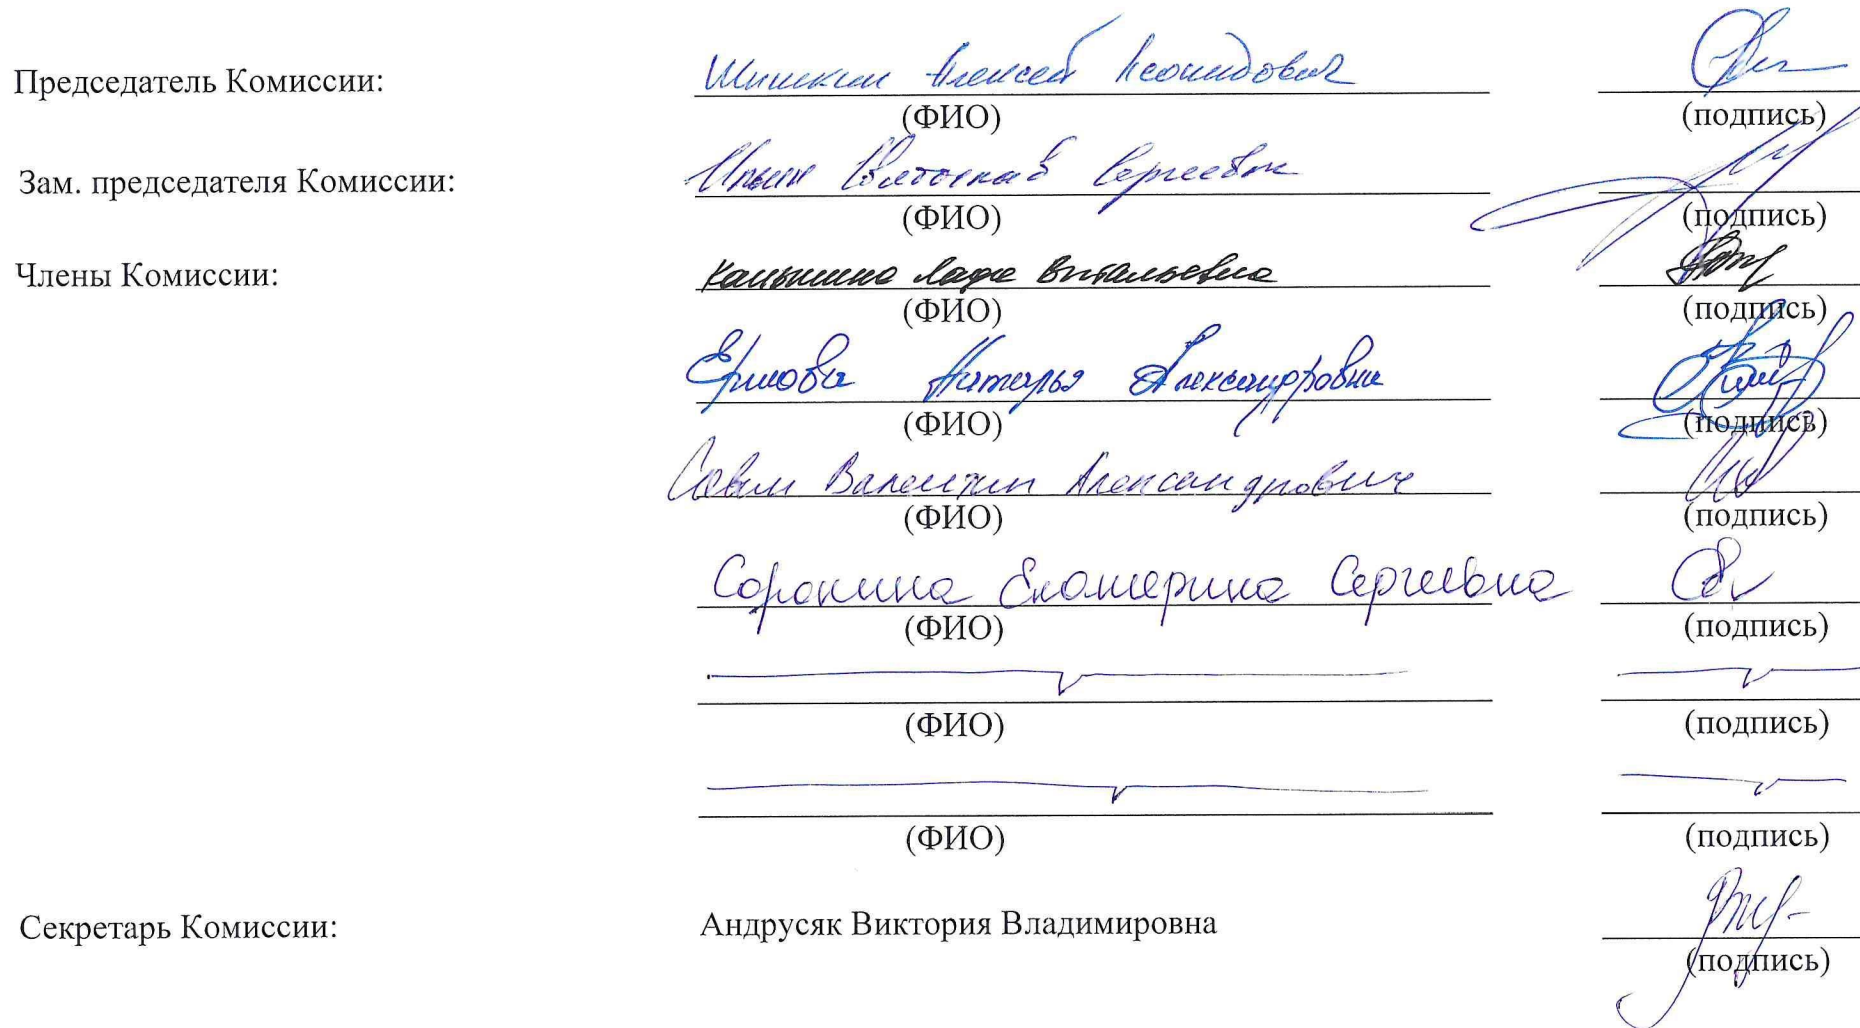 Председатель Комиссии: Шишкин Алексей Леонидович
(ФИО) (подпись)
Зам. председателя Комиссии: Ильин Святослав Сергеевич
(ФИО) (подпись)
Члены Комиссии: Витальевна
(ФИО) (подпись)
Наталья Александровна
(ФИО) (подпись)
Савин Валентин Александрович
(ФИО) (подпись)
Сорокина Екатерина Сергеевна
(ФИО) (подпись)
(ФИО) (подпись)
(ФИО) (подпись)
Секретарь Комиссии: Андрусяк Виктория Владимировна
(подпись)